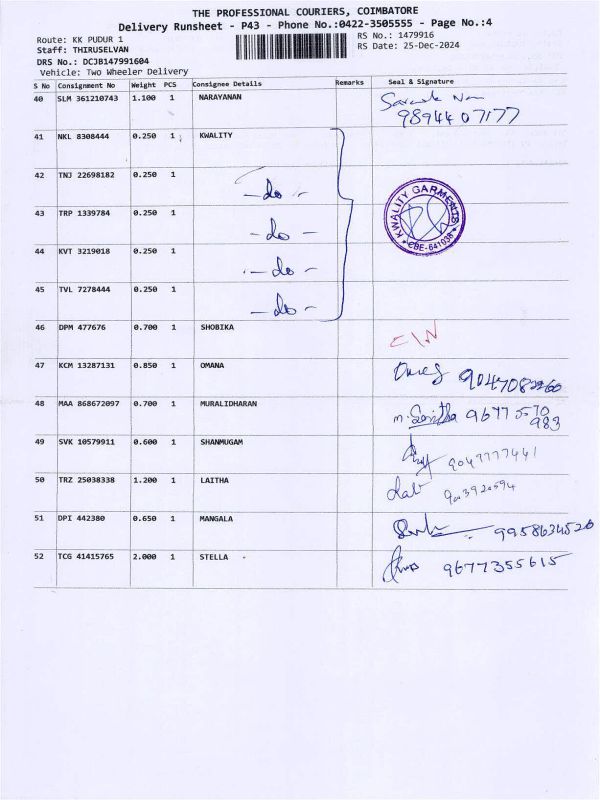 THE PROFESSIONAL COURIERS, COIMBATORE
Delivery Runsheet - P43 - Phone No.:0422-3505555 - Page No.:4
Route: KK PUDUR 1
RS No.: 1479916
Staff: THIRUSELVAN
RS Date: 25-Dec-2024
DRS No.: DCJB147991604
Vehicle: Two Wheeler Delivery
S No Consignment No Weight PCS Consignee Details Remarks Seal & Signature
40 SLM 361210743 1.100 1 NARAYANAN
9894407177
41 NKL 8308444 0.250 1 KWALITY
42 TNJ 22698182 0.250 1 - do -
43 TRP 1339784 0.250 1 - do -
44 KVT 3219018 0.250 1 - do -
45 TVL 7278444 0.250 1 - do -
KWALITY GARMENTS
CBE-641038
46 DPM 477676 0.700 1 SHOBIKA
47 KCM 13287131 0.850 1 OMANA
48 MAA 868672097 0.700 1 MURALIDHARAN m. Savitha 96775570
983
49 SVK 10579911 0.600 1 SHANMUGAM 9047777441
50 TRZ 25038338 1.200 1 LAITHA
51 DPI 442380 0.650 1 MANGALA 9958634520
52 TCG 41415765 2.000 1 STELLA 9677355615